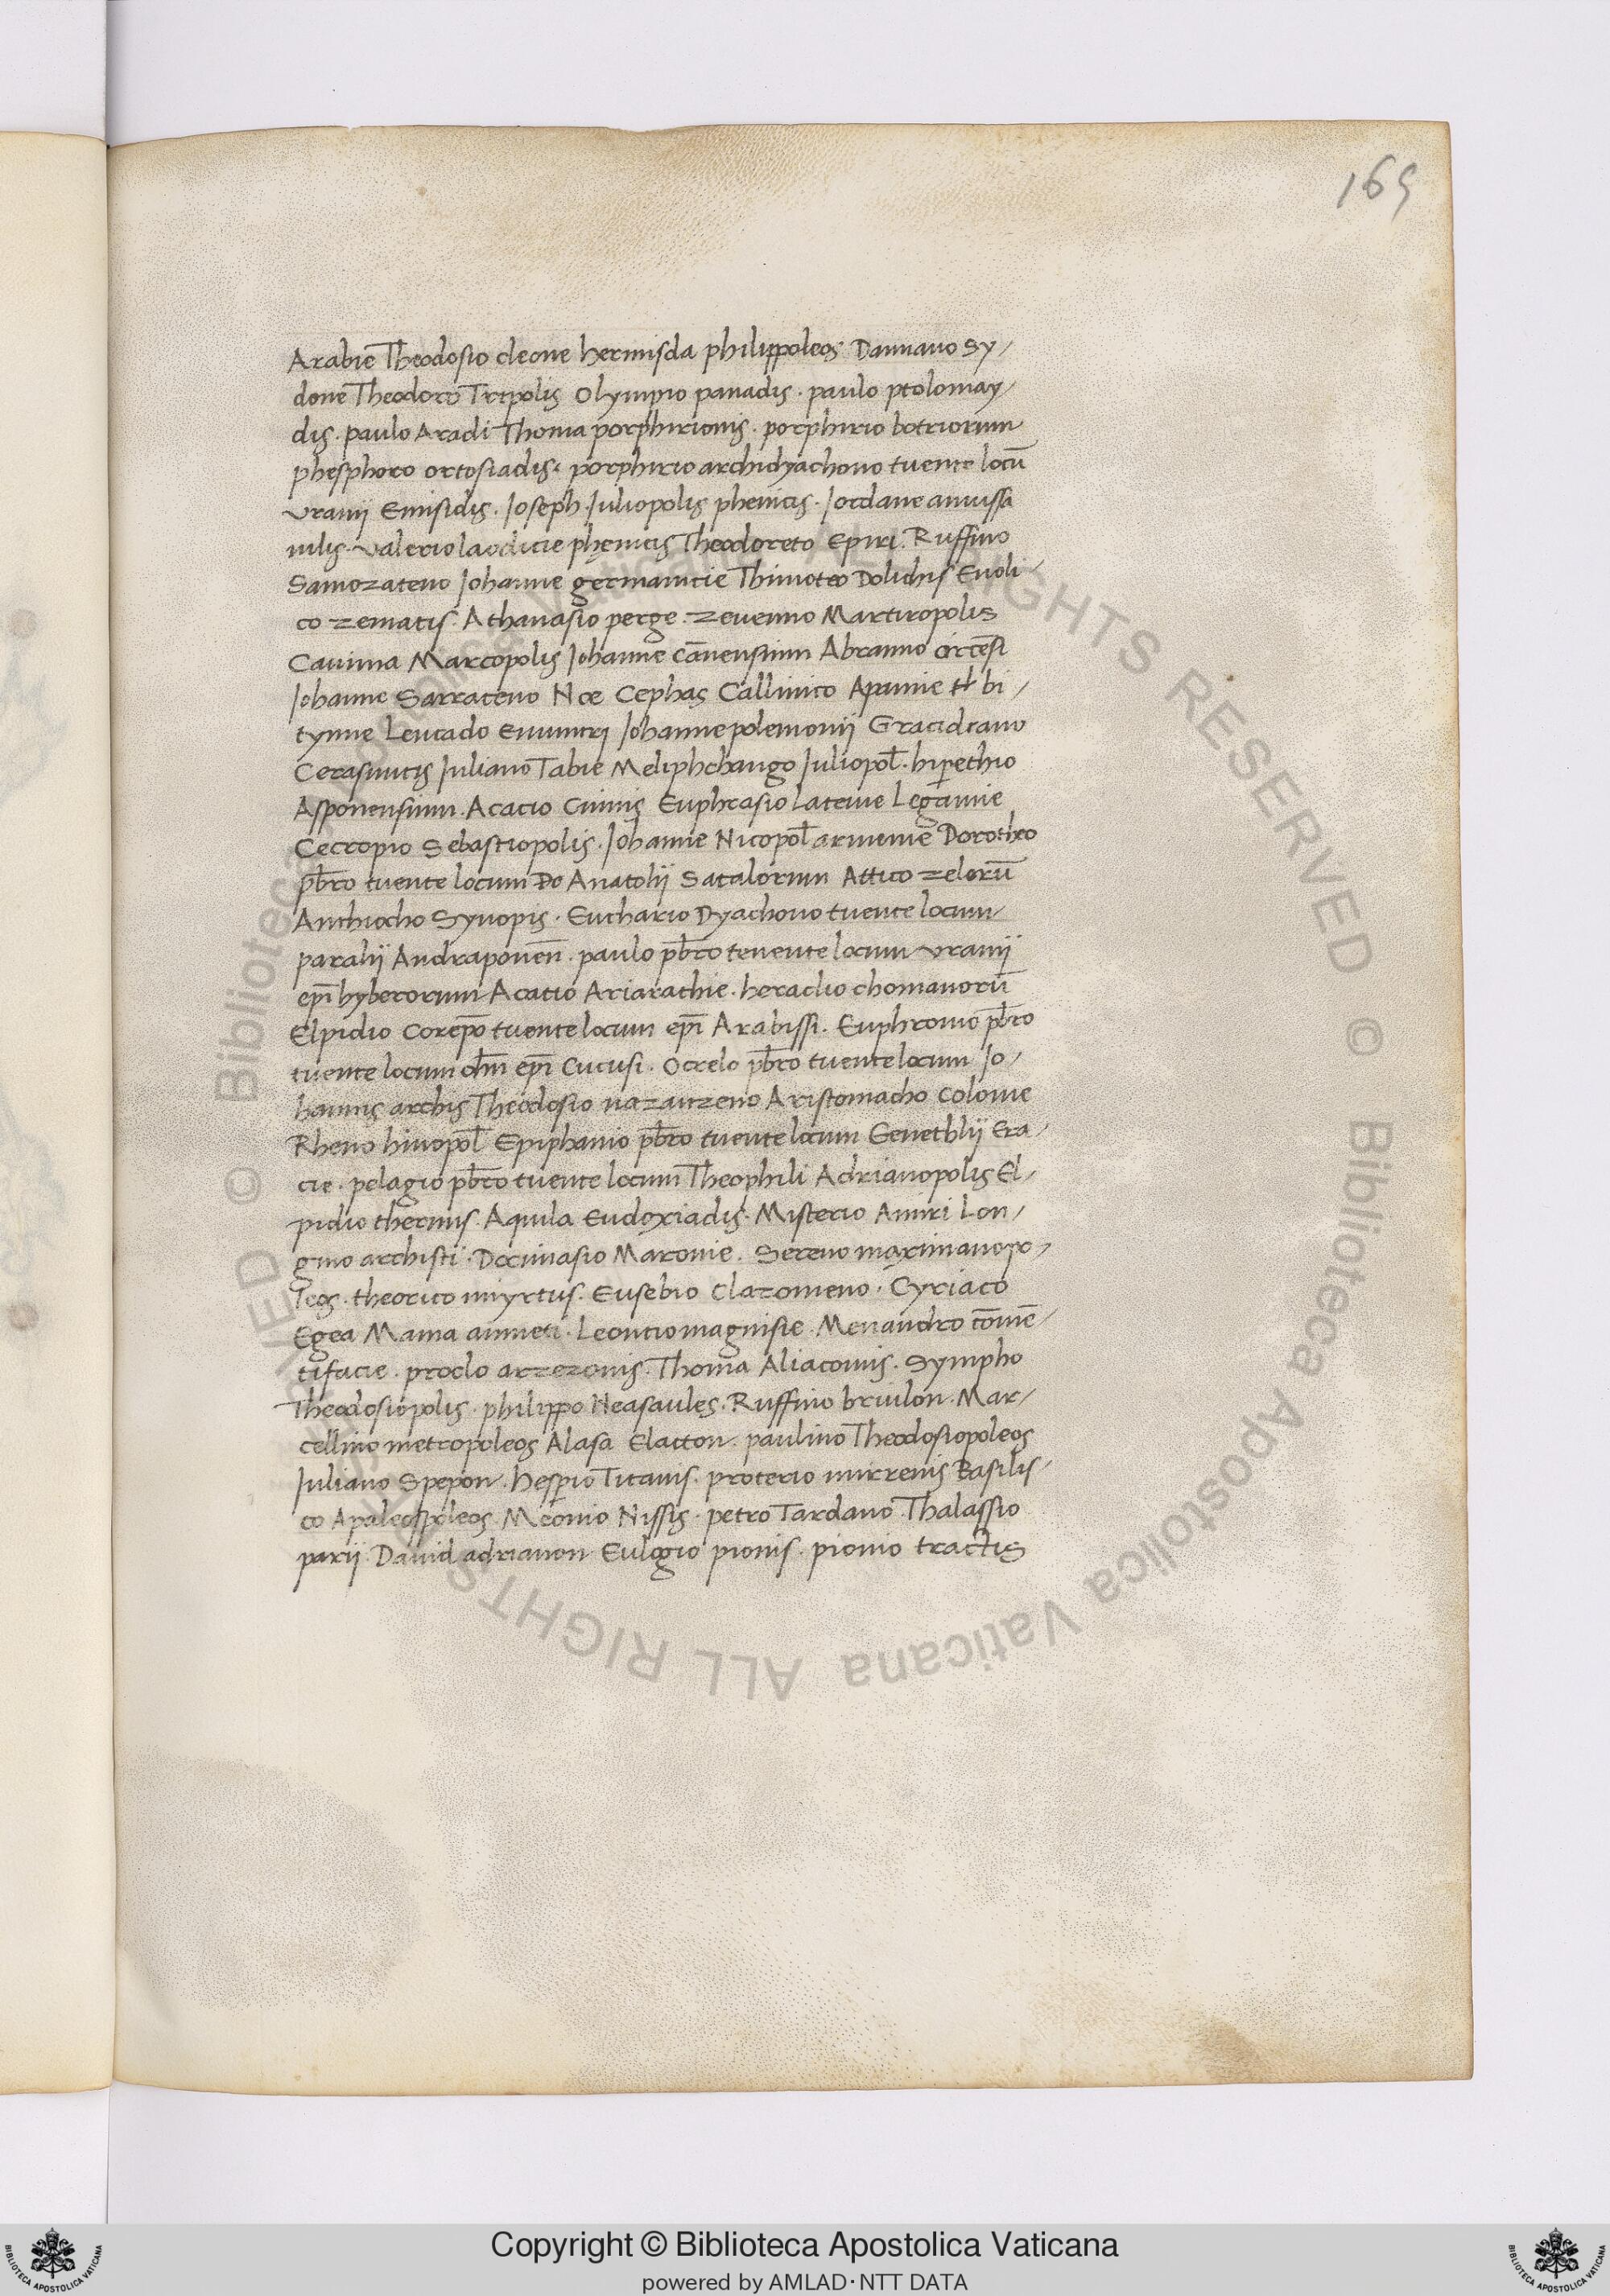 169
Arabie Theodosio cleone hermisda philippoleos Damiano Sy-
done Theodoro Tripolis Olympio panadis . paulo ptolomay-
dis . paulo Aradi Thoma porphirionis . porphirio botriorum
phesphoro ortosiadis . porphirio archidyachono tuente locū
uranij Emisidis . Joseph Juliopolis phenicis . Jordane anuissi
nilis . valerio laodicie phęnicis Theodoreto Epiri . Ruffino
Samozateno Johanne germanicie Thimoteo Dolichis Euoli-
co zematis . Athanasio perge . zeuenno Martiropolis
Cauima Marcopolis Johanne cānensium Abramo circēsi
Johanne Sarraceno Noe Cephas Callinico Apamie bi-
tynie Leucado Johanne polemonij Gracidiano
Cerasuntis Juliano Tabie Meliphchango Juliopol̄ . hiperthio
Asponensium . Acacio Cinnis Euphrasio lateine Legamie
Cecropio Sebastiopolis . Johanne Nicopol̄ armenie Dorotheo
pb̄ro tuente locum Do Anatolij Satalorum Attico zelorū
Anthiocho Synopis . Euchario Dyachono tuente locum
paralij Andraponen̄ . paulo pb̄ro tenente locum uranij
ep̄i hyberorum Acatio Ariarathie . heraclio chomanorū
Elpidio Corep̄o tuente locum ep̄i Arabissi . Euphronio pb̄ro
tuente locum ep̄i Cucusi . Ocrelo pb̄ro tuente locum Jo-
hannis archis Theodosio nazanzeno Aristomacho Colonie
Rheno hinopol̄ Epiphanio pb̄ro tuente locum Genethlij Era-
cie . pelagio pb̄ro tuente locum Theophili Adrianopolis El-
pidio thermis . Aquila Eudoxiadis . Misterio Amiri Lon-
gino archistii . Docimasio Maronie . Sereno maximianopo-
leos . theorico miyrtus . Eusebio Clazomeno . Cyriaco
Egea Mama anineti . Leontio magnisie . Menandro
tifacie . proclo arzezonis . Thoma Aliaconis . Sympho
Theodosiopolis . philippo Neasaules . Ruffino briulon . Mar-
cellino metropoleos Alasa Elatton . paulino Theodosiopoleos
Juliano Spepon . hesperio Titanis . proterio mirrenis Basilis-
co Apaleospoleos Meonio Nissis . petro Dardano Thalassio
parij David adrianon Eulogio pionis . pionio tractis
© Biblioteca Apostolica Vaticana ALL RIGHTS RESERVED © Biblioteca Apostolica Vaticana ALL RIGHTS RESERVED
Copyright © Biblioteca Apostolica Vaticana
powered by AMLAD · NTT DATA
BIBLIOTECA APOSTOLICA VATICANA
BIBLIOTECA APOSTOLICA VATICANA